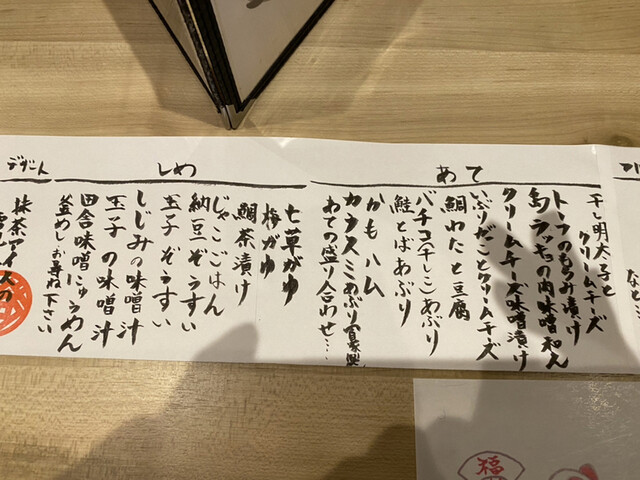 あて
干し明太子と
クリームチーズ
トーフのもろみ漬け
島ラッキョの肉味噌和え
クリームチーズ味噌漬け
いぶりがことクリームチーズ
鯛わたと豆腐
バチコ(干しこ)あぶり
鮭とばあぶり
かもハム
カラスミあぶり(自家製)
あての盛り合わせ…
しめ
七草がゆ
梅がゆ
鯛茶漬け
じゃこごはん
納豆ぞうすい
玉子ぞうすい
しじみの味噌汁
玉子の味噌汁
田舎味噌にゅうめん
釜めし・お尋ね下さい
デザート
抹茶アイスの
福